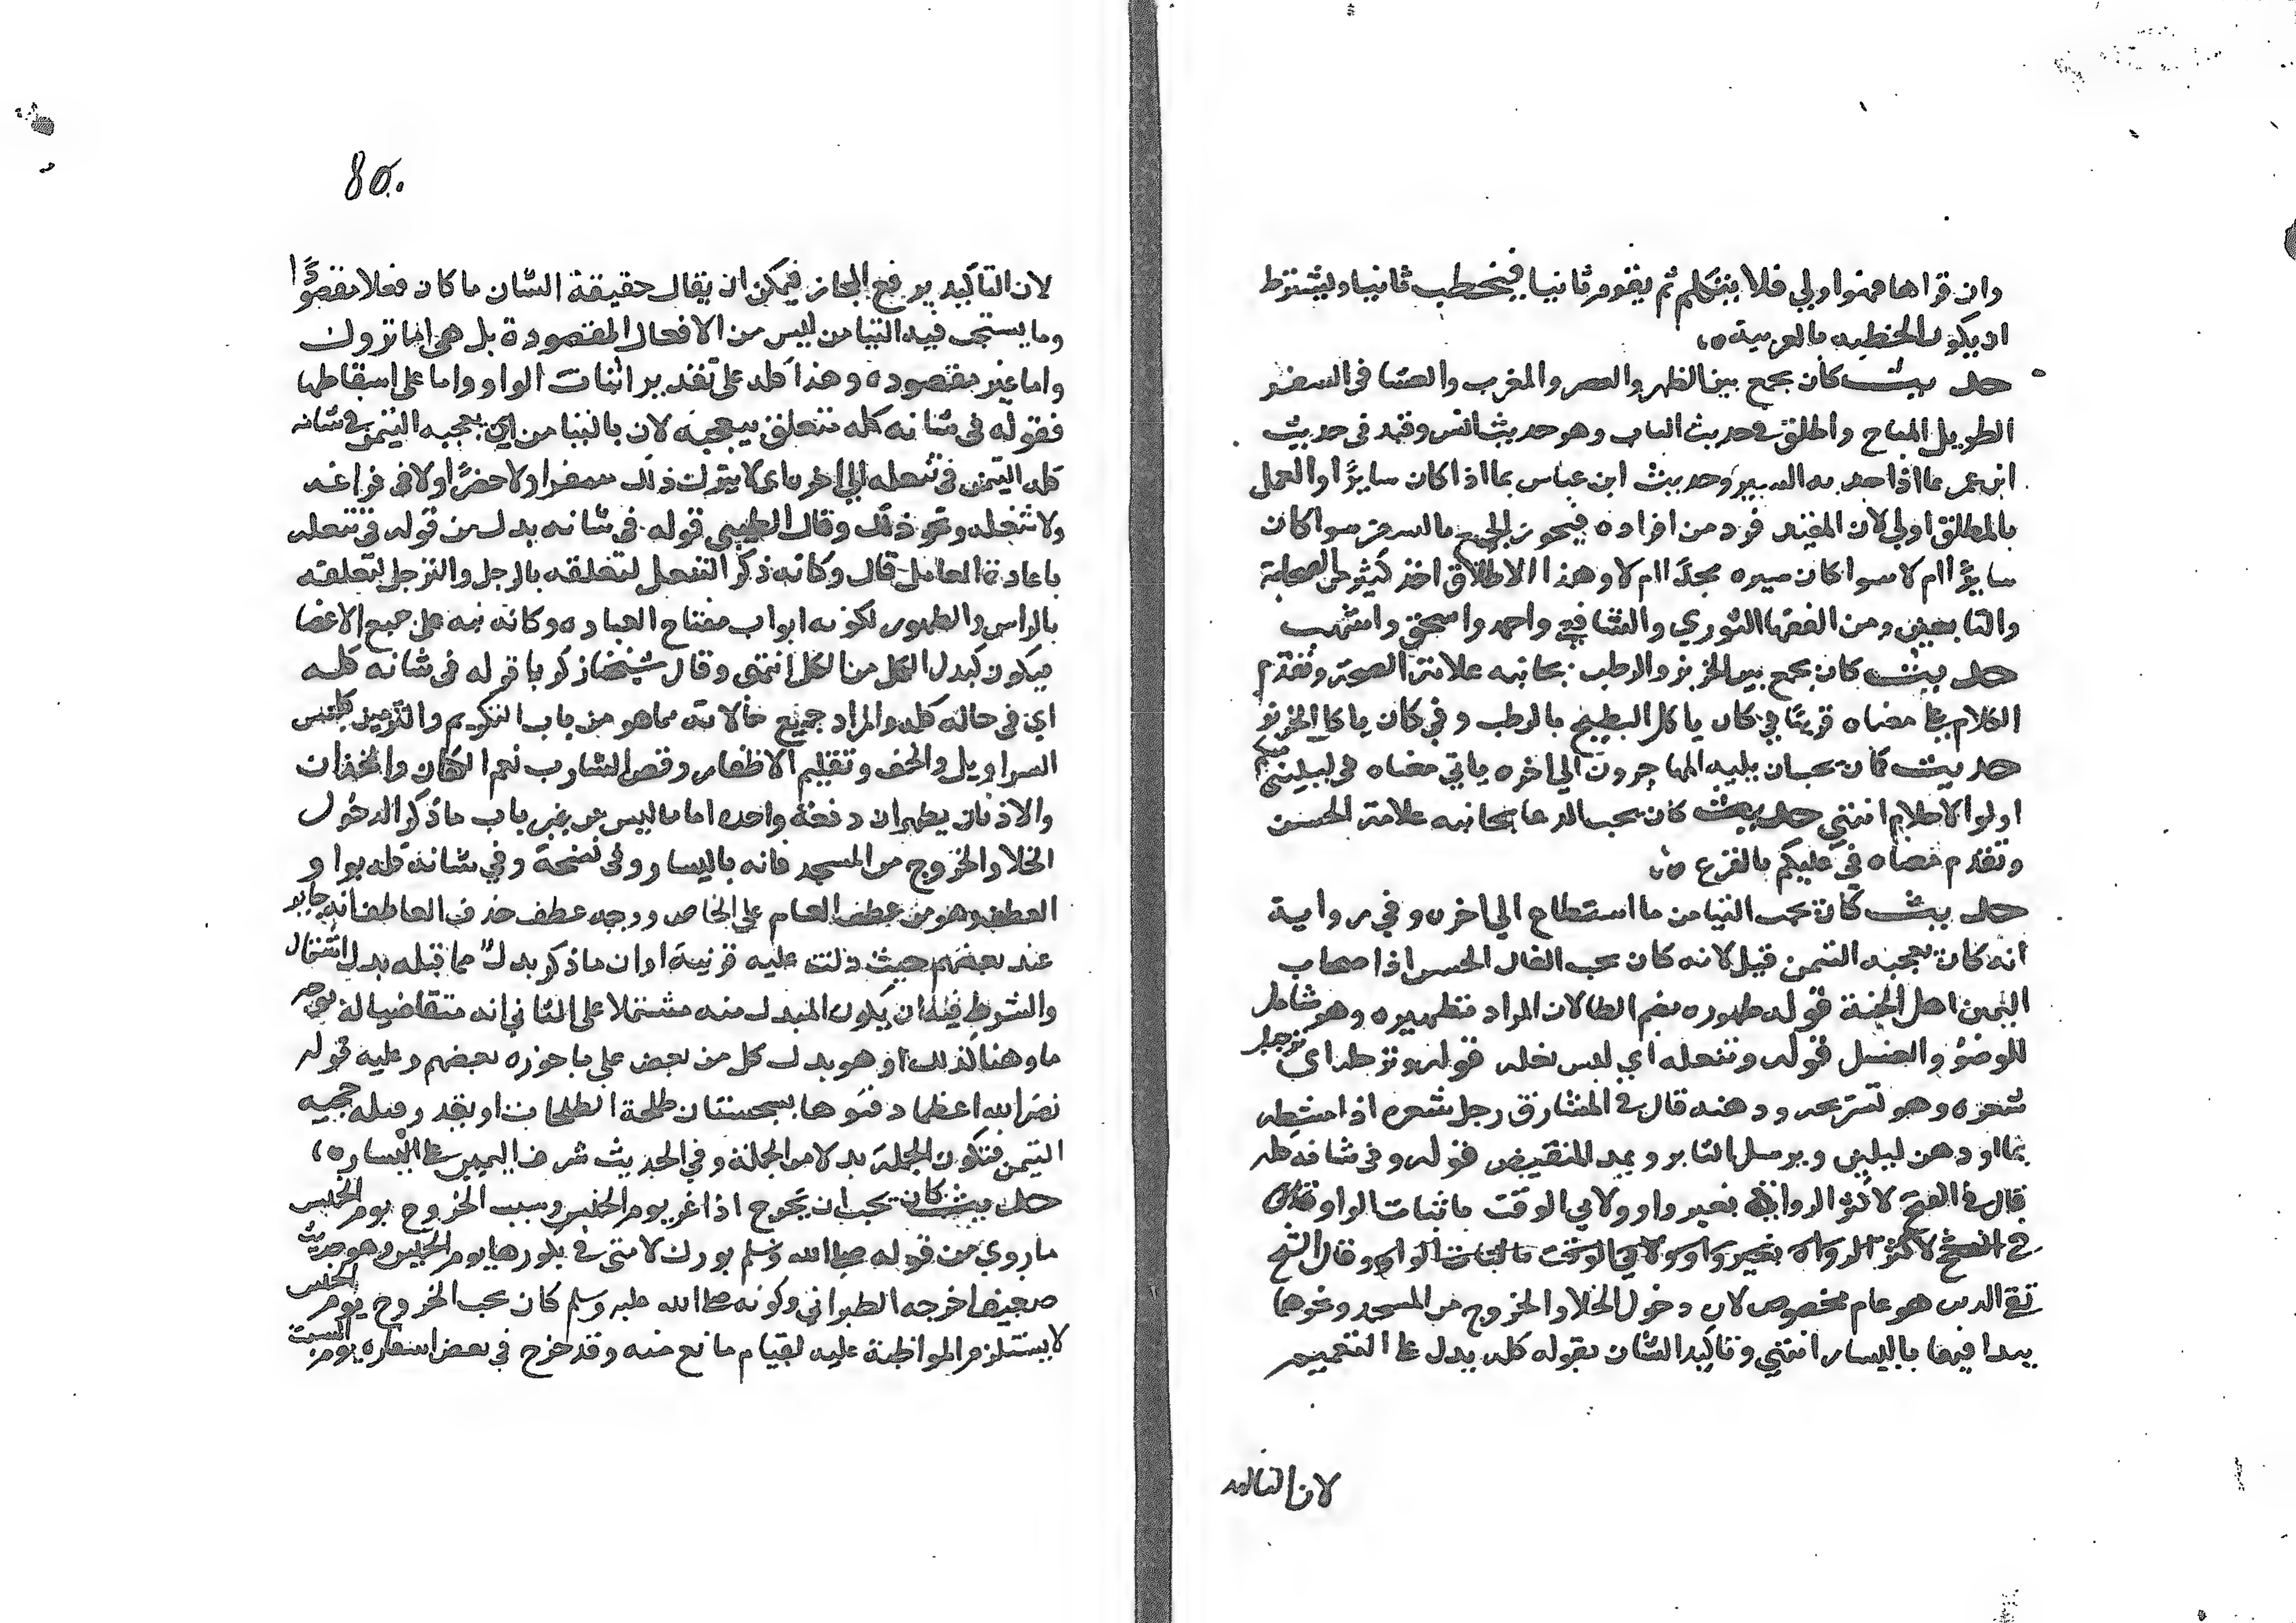 وان قراها فهو اولي فلا يتكلم ثم يقوم ثانيا فيخطب ثانيا ويشترط
ان يكون الخطبه بالعربية ه
حديث كان يجمع بين الظهر والعصر والمغرب والعشا في السفر
الطويل المباح واطلق في حديث الباب وهو حديث انس وقيد في حديث
ابن عمر بما اذا جد به السير وحديث ابن عباس بما اذا كان سايرًا والعمل
بالمطلق اولي لان المقيد فرد من افراده فيجوز الجمع بالسفر سوا كان
سايرًا ام لا سوا كان سيره مجدًا ام لا وهذا الاطلاق اخذ كثير من الصحابة
والتابعين ومن الفقها الثوري والشافعي واحمد واسحق واشهب
حديث كان يجمع بين الخربز والرطب بجانبه علامة الصحة وتقدم
الكلام على معناه قريبًا في كان ياكل البطيخ بالرطب وفي كان ياكل الخربز
حديث كان يحب ان يليه المهاجرون الي اخره ياتي معناه في ليليني منكم
اولوا الاحلام انتهي حديث كان يحب الدبا بجانبه علامة الحسن
وتقدم معناه في عليكم بالقرع ه
حديث كان يحب التيامن ما استطاع الي اخره وفي رواية
انه كان يعجبه التيمن قيل لانه كان يحب الفال الحسن اذ اصحاب
اليمين اهل الجنة قوله طهوره بضم الطا لان المراد تطهيره وهو شامل
للوضؤ والغسل قوله وتنعله اي لبس نعله قوله وترجله اي ترجيل
شعره وهو تسريحه ودهنه قال في المشارق رجل شعره اذا مشطه
بما او دهن ليلين ويرسل الثاير ويمد المنقبض قوله وفي شانه كله
قال في الفتح لاكثر الرواة بغير واو ولابي الوقت باثبات الواو قال
في الفتح لاكثر الرواة بغير واو ولابي الوقت باثبات الواو وقال الشيخ
تقي الدين هو عام مخصوص لان دخول الخلا والخروج من المسجد ونحوهما
يبدا فيهما باليسار انتهي وتاكيد الشان بقوله كله يدل على التعميم
لان التاكيد
80.
لان التاكيد يرفع المجاز فيمكن ان يقال حقيقة الشان ما كان فعلا مقصودًا
وما يستحب فيه التياسر ليس من الافعال المقصودة بل هي اما تروك
واما غير مقصوده وهذا كله على تقدير اثبات الواو واما على اسقاطها
فقوله في شانه كله متعلق بيعجبه لا بالتيامن اي يعجبه التيمن في شانه
كله التيمن في تنعله الي اخره اي لا يترك ذلك سفرا ولا حضرًا ولا في فراغه
ولا شغله ونحو ذلك وقال الطيبي قوله في شانه بدل من قوله في تنعله
باعادة العامل قال وكانه ذكر التنعل لتعلقه بالرجل والترجل لتعلقه
بالراس والطهور لكونه ابواب مفتاح العباده وكانه نبه على جميع الاعضا
فيكون كبدل الكل من الكل انتهى وقال شيخنا زكريا قوله في شانه كله
اي في حاله كله والمراد جميع حالاته مما هو من باب التكريم والتزيين كلبس
السراويل والخف وتقليم الاظفار وقص الشارب نعم الكفان والخدان
والاذنان يطهران دفعة واحده اما ما ليس من باب ما ذكر الدخول
الخلا والخروج من المسجد فانه باليسار وفي نسخة وفي شانه كله بواو
العطف وهو من عطف العام على الخاص ووجه عطف حذف العاطف انه جايز
عند بعضهم حيث دلت عليه قرينة او ان ما ذكر بدل مما قبله بدل اشتمال
والشرط فيه ان يكون المبدل منه مشتملا على الثاني انه متقاضيا له بوجه
ما وهنا كذلك او هو بدل كل من بعض على ما جوزه بعضهم وعليه قوله
نضر الله اعظما دفنوها بسجستان طلحة الطلحات او يقدر قبله يعجبه
التيمن فتكون الجملة بدلا من الجملة وفي الحديث شرف اليمين على اليسار ه
حديث كان يحب ان يخرج اذا غزي يوم الخميس وسبب الخروج يوم الخميس
ما روي من قوله صلى الله وسلم بورك لامتي في بكورها يوم الخميس وهو حديث
ضعيف اخرجه الطبراني وكونه صلى الله عليه وسلم كان يحب الخروج يوم الخميس
لا يستلزم المواظبة عليه لقيام مانع منه وقد خرج في بعض اسفاره يوم السبت